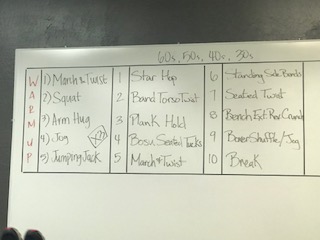 60s, 50s, 40s, 30s
WARMUP
1) March & Twist
2) Squat
3) Arm Hug
4) Jog
5) Jumping Jack
x2
1 Star Hop
2 Band Torso Twist
3 Plank Hold
4 Bosu Seated Tucks
5 March & Twist
6 Standing Side Bends
7 Seated Twist
8 Bench Ext. Rev Crunch
9 Boxer Shuffle / Jog
10 Break